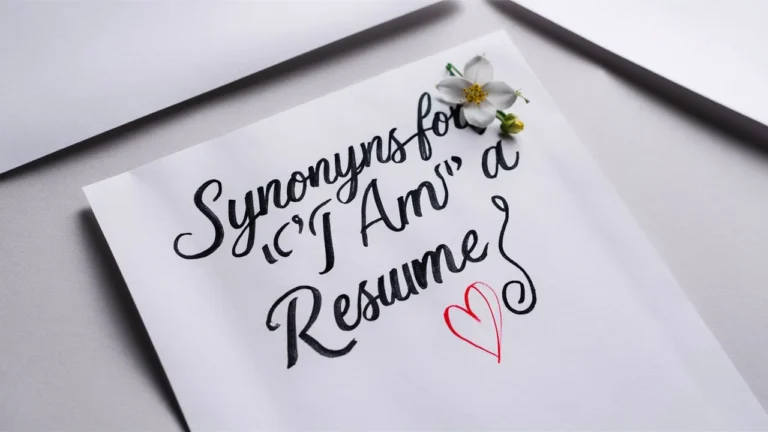 Synonyns for
"I Am" a
Resume